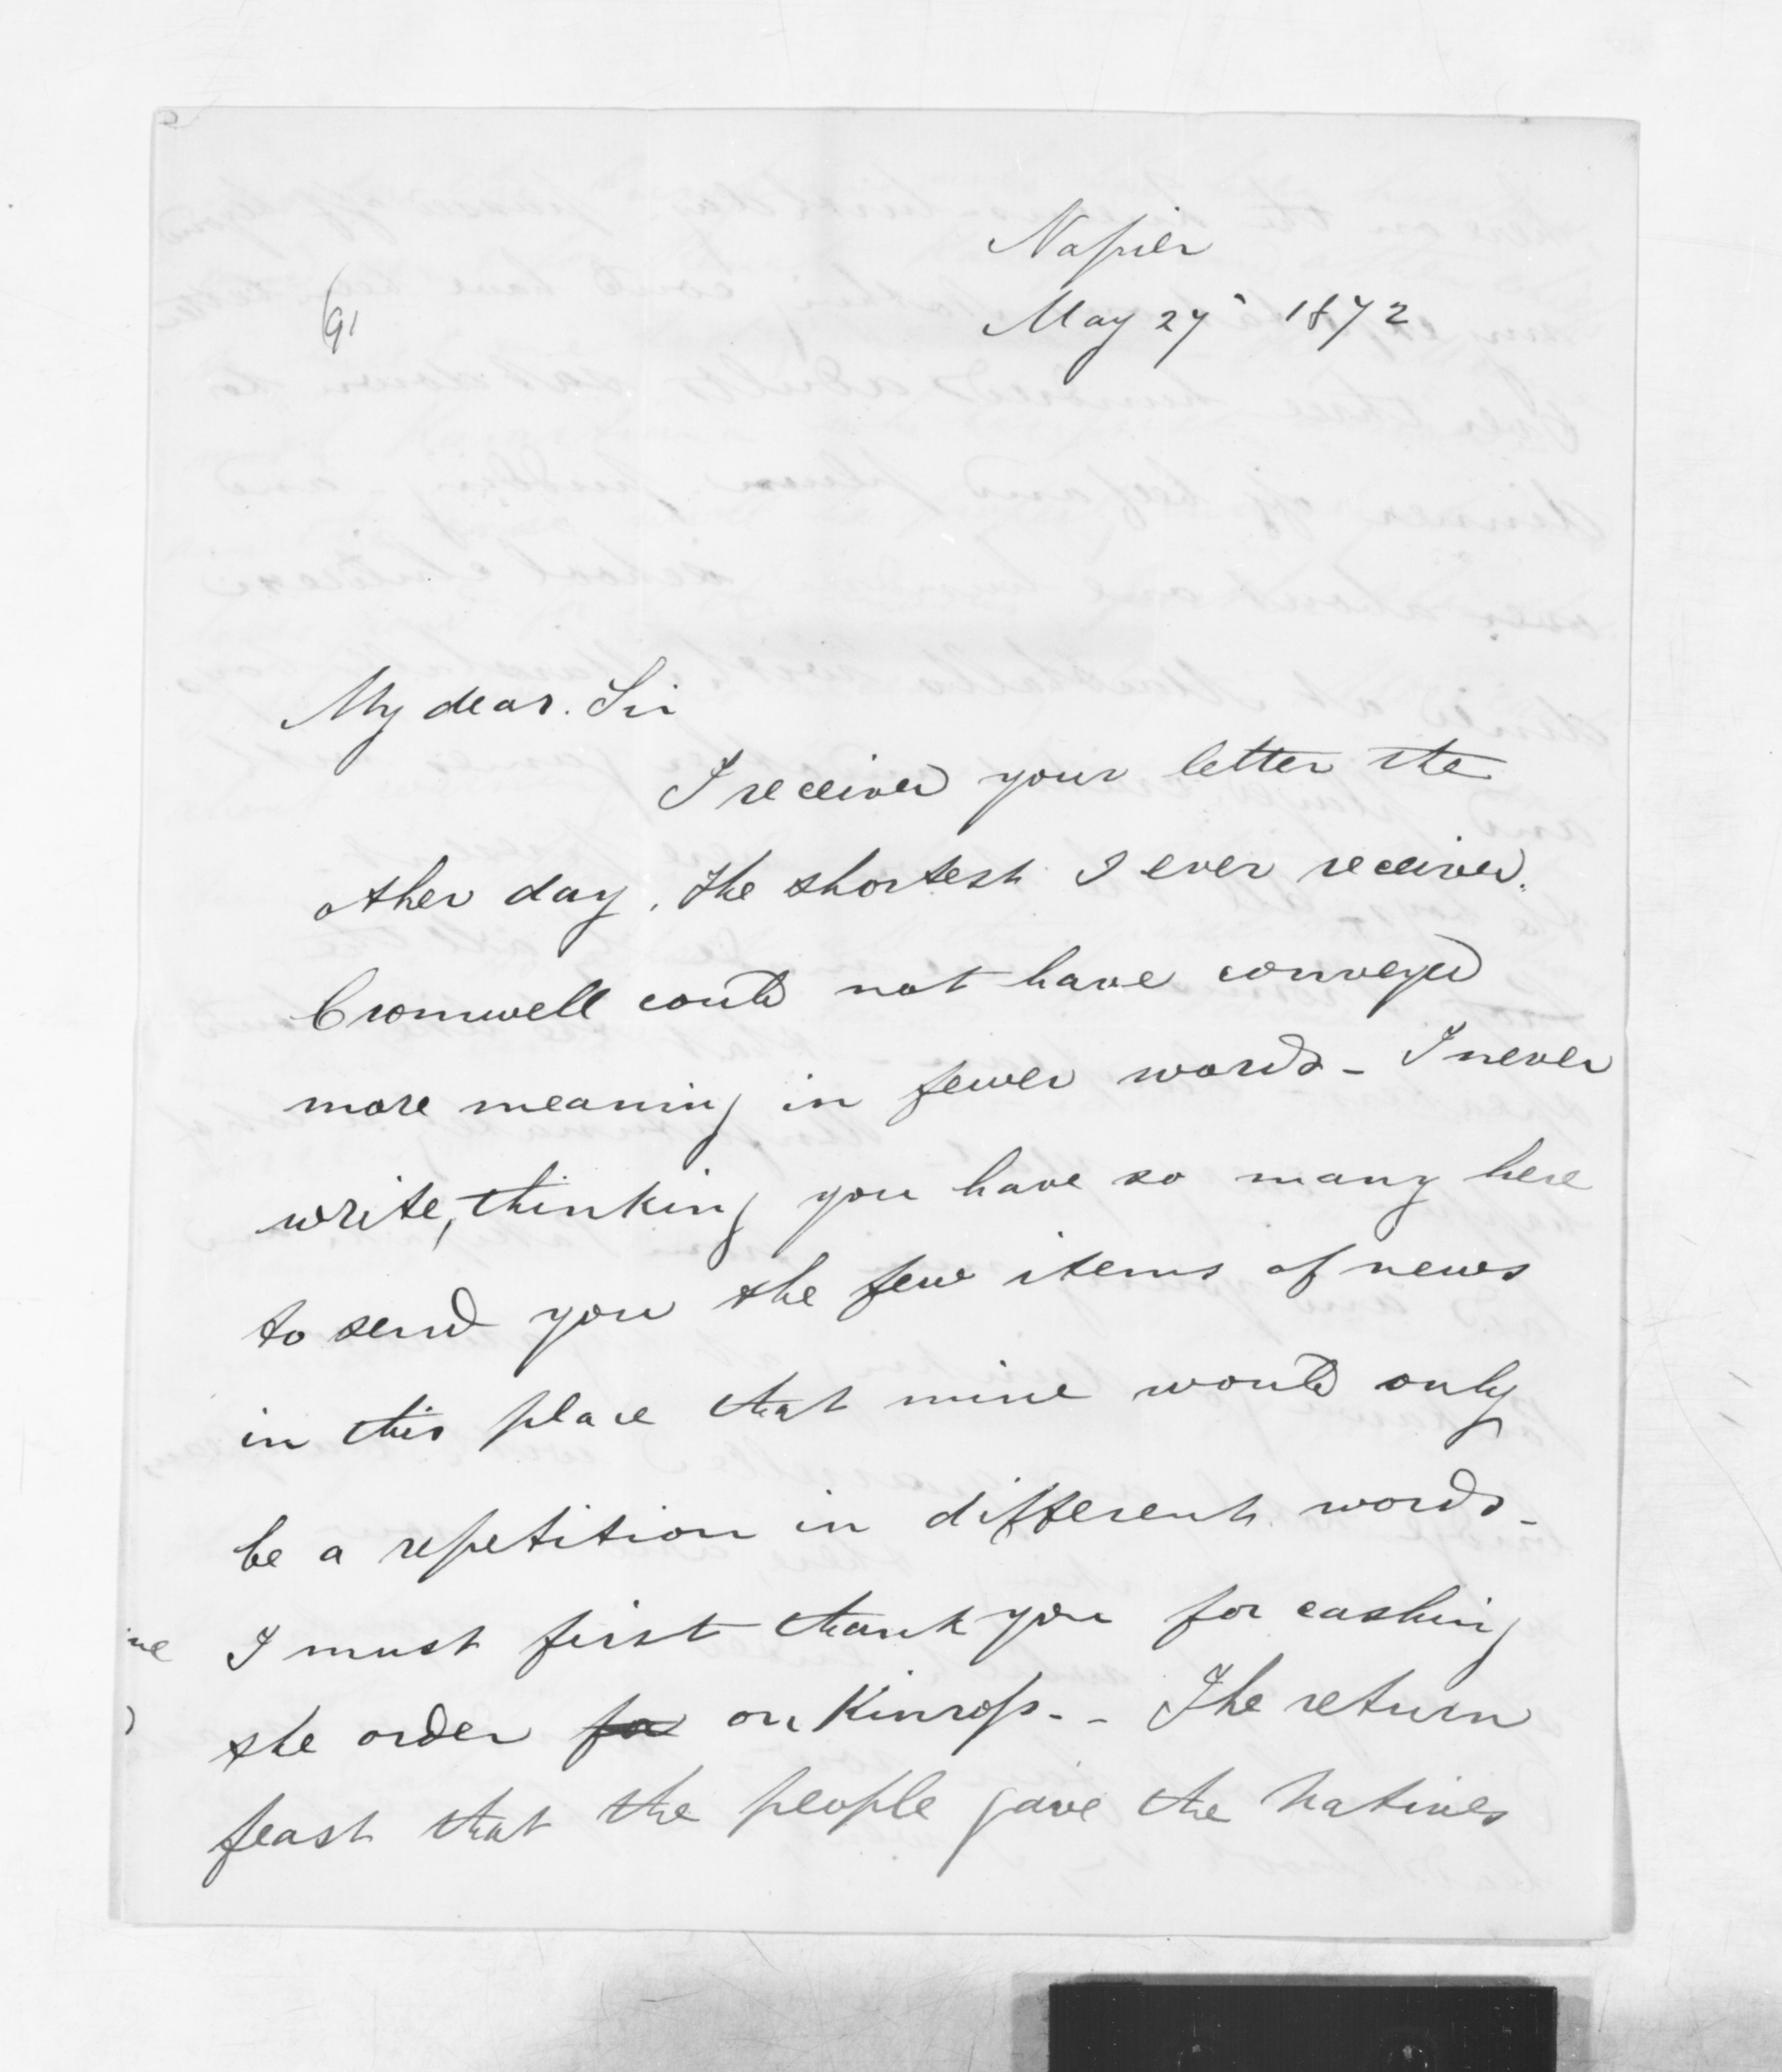 Napier
May 27 1872
91
My dear. Sir
I received your letter the
other day, the shortest I ever received.
Cromwell could not have conveyed
more meaning in fewer words - I never
write, thinking you have so many here
to send you the few items of news
in this place that mine would only
be a repetition in different words -
I must first thank you for cashing
the order for on Kinross - - The return
feast that the people gave the Natives